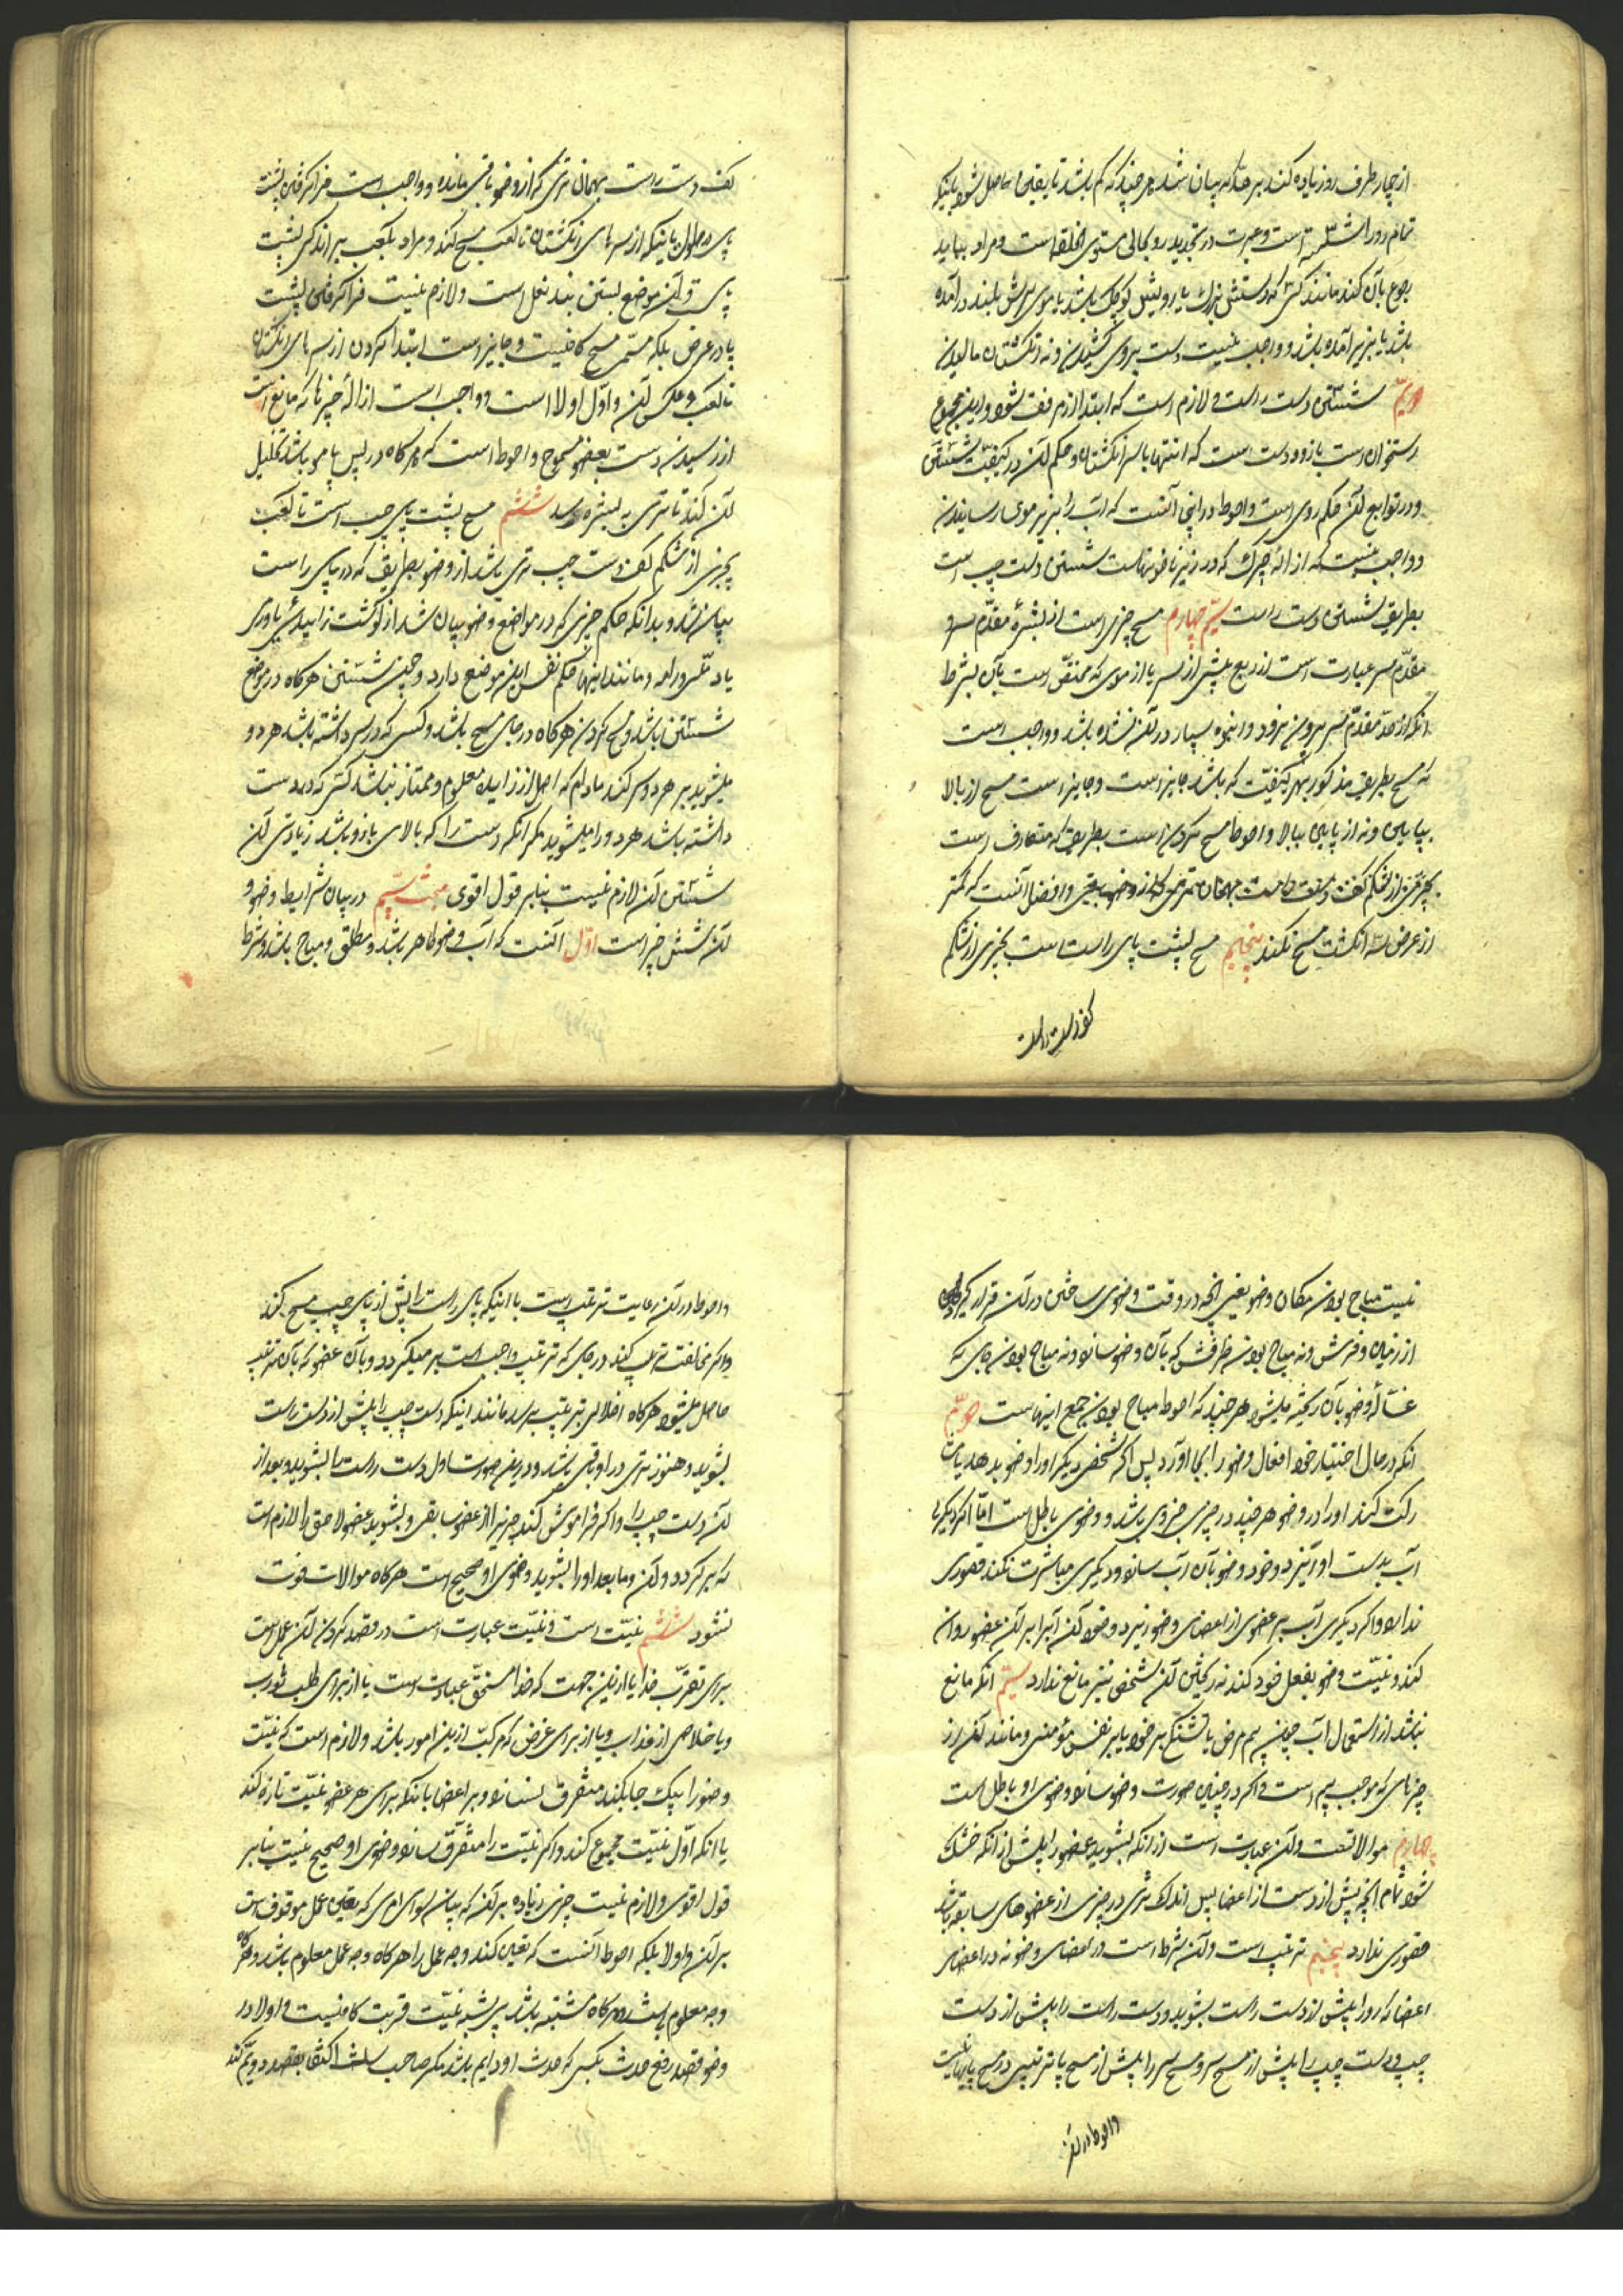 از چهار طرف رو زیاده کند بر حدّ که بیان شد هر چند که کم باشد تا یقین حاصل شود باینکه
تمام رو را شسته است و عبرت در تحدید رو بحال مستوی الخلقه است و مراد بباید
رجوع بآن کند مانند کسی که دستش بزرگ یا رویش کوچک باشد یا موی سرش بلند در آمده
باشد یا بزیر آمده باشد و واجب نیست دست بروی کشیدن و نه انگشتان مالیدن
دویّم شستن دست راست و لازم است که ابتدا از مرفق شود و این مجموع
استخوان دست بازو و دست است که انتها بسر انگشتان و حکم آن در کیفیّت شستن
و در توابع آن حکم روی است و احوط در اینجا آنست که آب را بزیر موی رسانیدن
و واجب نیست که ازالهٔ چرک که در زیر ناخونهاست شستن دست چپ است
بطریق شستن دست راست سیّم چهارم مسح چیزی است از بشرهٔ مقدّم سر و
مقدّم سر عبارت است از ربع پیش از سر یا از موی که مختصّ است بآن بشرط
آنکه از حدّ مقدّم سر بیرون نرود و انبوه بسیار در آن نشده باشد و واجب است
که مسح بطریق مذکور بهر کیفیّت که باشد جایز است و جایز است مسح از بالا
بپایین و نه از پایین ببالا و احوط مسح کردن است بطریق که متعارف است
بجزئی از شکم کف دست راست بهمان تری که از وضو باقی و افضل آنست که کمتر
از عرض سه انگشت مسح نکند پنجم مسح پشت پای راست است بجزئی از شکم
کف دست راست
کف دست راست بهمان تری که از وضو باقی مانده و واجب است فرا گرفتن پشت
پای در طول باینکه از سر های انگشتان تا کعب مسح کند و مراد بکعب بر آمدگی پشت
پای و آن موضع بستن بند نعل است و لازم نیست فرا گرفتن پشت
پا در عرض بلکه مسمّی مسح کافیست و جایز است ابتدا کردن از سر های انگشتان
تا کعب و عکس آن و اوّل اولا است و واجب است ازالهٔ چیزها که مانع است
از رسیدن دست بعضو ممسوح و احوط است که هرگاه در پس پا مو باشد تخلیل
آن کند تا تری به بشره رسد ششم مسح پشت پای چپ است تا کعب
بجزئی از شکم کف دست چپ بتری باشد از وضو بطریق که در پای راست
بیان شد و بدانکه حکم چیزی که در مواضع وضو بیان شد از گوشت زاییده یا وری
یا دملّ و رامه و مانند اینها حکم نفس این موضع دارد و چین شستن هرگاه در موضع
شستن باشد و مسح کردن هرگاه در جای مسح باشد و کسی که دو سر داشته باشد هر دو
میشوید بر هر دو سر کند مادام که اصل از زاید معلوم و ممتاز نباشد کسی که دو دست
داشته باشد هر دو را میشوید مگر آنکه دست را که بالای بازو باشد زیادتی آن
شستن آن لازم نیست بنابر قول اقوی مبحث سیّم در بیان شرایط وضو و
آن شش چیز است اوّل آنست که آب وضو طاهر باشد و مطلق و مباح باشد و شرط
نیست مباح بودن مکان وضو یعنی آنچه در وقت وضوی ساختن در آن قرار گیرد
از زمین و فرش و نه مباح بودن ظرفش که بآن وضو سازد و نه مباح بودن جای که
غسّالهٔ وضو بآن ریخته میشود هر چند که احوط مباح بودن جمیع اینهاست دویّم
آنکه در حال اختیار خود افعال وضو را بجا آورد پس اگر شخص دیگر او را وضو بدهد یا
شرکت کند او را در وضو هر چند در چیزی جزوی باشد وضوی باطل است امّا اگر دیگری
آب بدست او ریزد و خود وضو بآن آب سازد و دیگری مباشرت نکند قصوری
ندارد و اگر دیگری آب بر عضوی از اعضای وضو ریزد و خود آن آب را بر آن عضو روان
کند و نیّت وضو بفعل خود کند نه ریختن آن شخص نیز مانع ندارد سیّم آنکه مانع
نباشد از استعمال آب چون بیم مرض یا تشنگی بر خود یا بر نفس مؤمنی و مانند آن از
چیزهای که موجب بیم است و اگر در چنین صورت وضو سازد وضوی او باطل است
چهارم موالاتست و آن عبارت است از آنکه بشوید عضو را پیش از آنکه خشک
شود تمام آنچه پیش از دست از اعضا پس اندک تری در چیزی از عضوهای سابقه باشد
قصوری ندارد پنجم ترتیب است و آن شرط است در اعضای وضو نه در اعضای
اعضا که رو را پیش از دست راست بشوید و دست راست را پیش از دست
چپ و دست چپ را پیش از مسح سر و مسح سر را پیش از مسح پا و ترتیب در مسح پاها نیست
و احوط در آن
و احوط در آن رعایت ترتیب است با اینکه پای راست را پیش از پای چپ مسح کند
و اگر مخالفت ترتیب کند در جای که ترتیب واجب است بر میگردد و بآن عضو که بآن ترتیب
حاصل میشود هرگاه اخلالی بترتیب برسد مانند اینکه دست چپ را پیش از دست راست
بشوید و هنوز تری در او باقی باشد و در این صورت اول دست راست را بشوید و بعد از
آن دست چپ را و اگر فراموش کند چیزی را از عضو سابق و بشوید عضو لاحق را لازم است
که بر گردد و آن و ما بعد او را بشوید وضوی او صحیح است هرگاه موالات فوت
نشود ششم نیّت است و نیّت عبارت است در قصد کردن آن عمل است
برای تقرّب خدا یا از این جهت که خدا مستحقّ عبادت است یا از برای طلب ثواب
و یا خلاصی از عذاب و یا از برای غرض که مرکّب از این امور باشد و لازم است که نیّت
وضو را بیک جا بکند متفرق نسازد و بر اعضا بانکه برای هر عضو نیّت تازه کند
یا آنکه اوّل نیّت مجموع کند و اگر نیّت را متفرّق سازد وضوی او صحیح نیست بنابر
قول اقوی و لازم نیست چیزی زیاده بر آن که بیان سوای امری که تعیین عمل موقوف است
بر آن و اولا بلکه احوط آنست که تعیین کند وجه عمل را هرگاه وجه عمل معلوم باشد و هرگاه
وجه معلوم باشد و هرگاه مشتبه باشد پس نیّت قربت کافیست و اولا در
وضو قصد رفع حدث بکسی که حدث او دایم باشد مگر صاحب سلس اکتفا بقصد دویّم کند